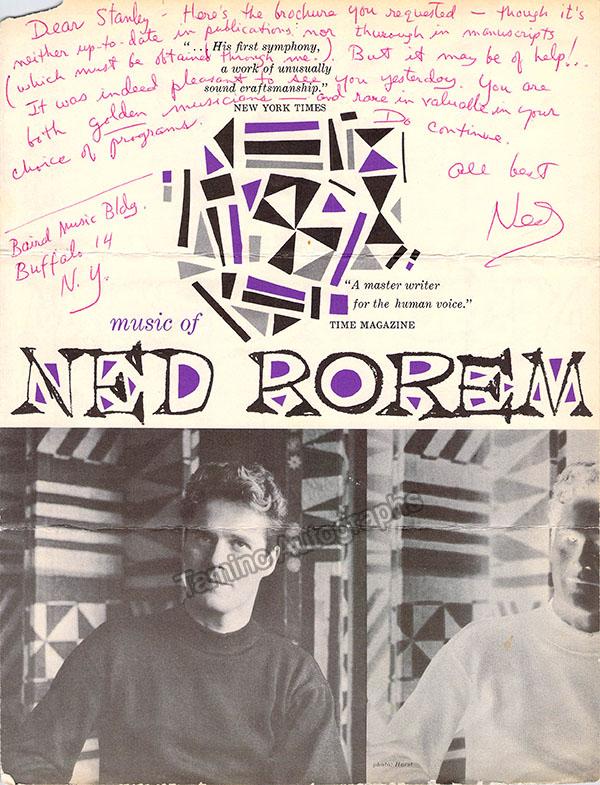 Dear Stanley - Here's the brochure you requested — though it's
neither up-to-date in publications nor thorough in manuscripts
(which must be obtained through me.) But it may be of help!..
It was indeed pleasant to see you yesterday. You are
both golden musicians — and rare in valuable in your
choice of programs. Do continue.
All best
Ned
Baird Music Bldg.
Buffalo 14
N.Y.
"... His first symphony,
a work of unusually
sound craftsmanship."
NEW YORK TIMES
"A master writer
for the human voice."
TIME MAGAZINE
music of
NED ROREM
Tamino Autographs
photo: Horst